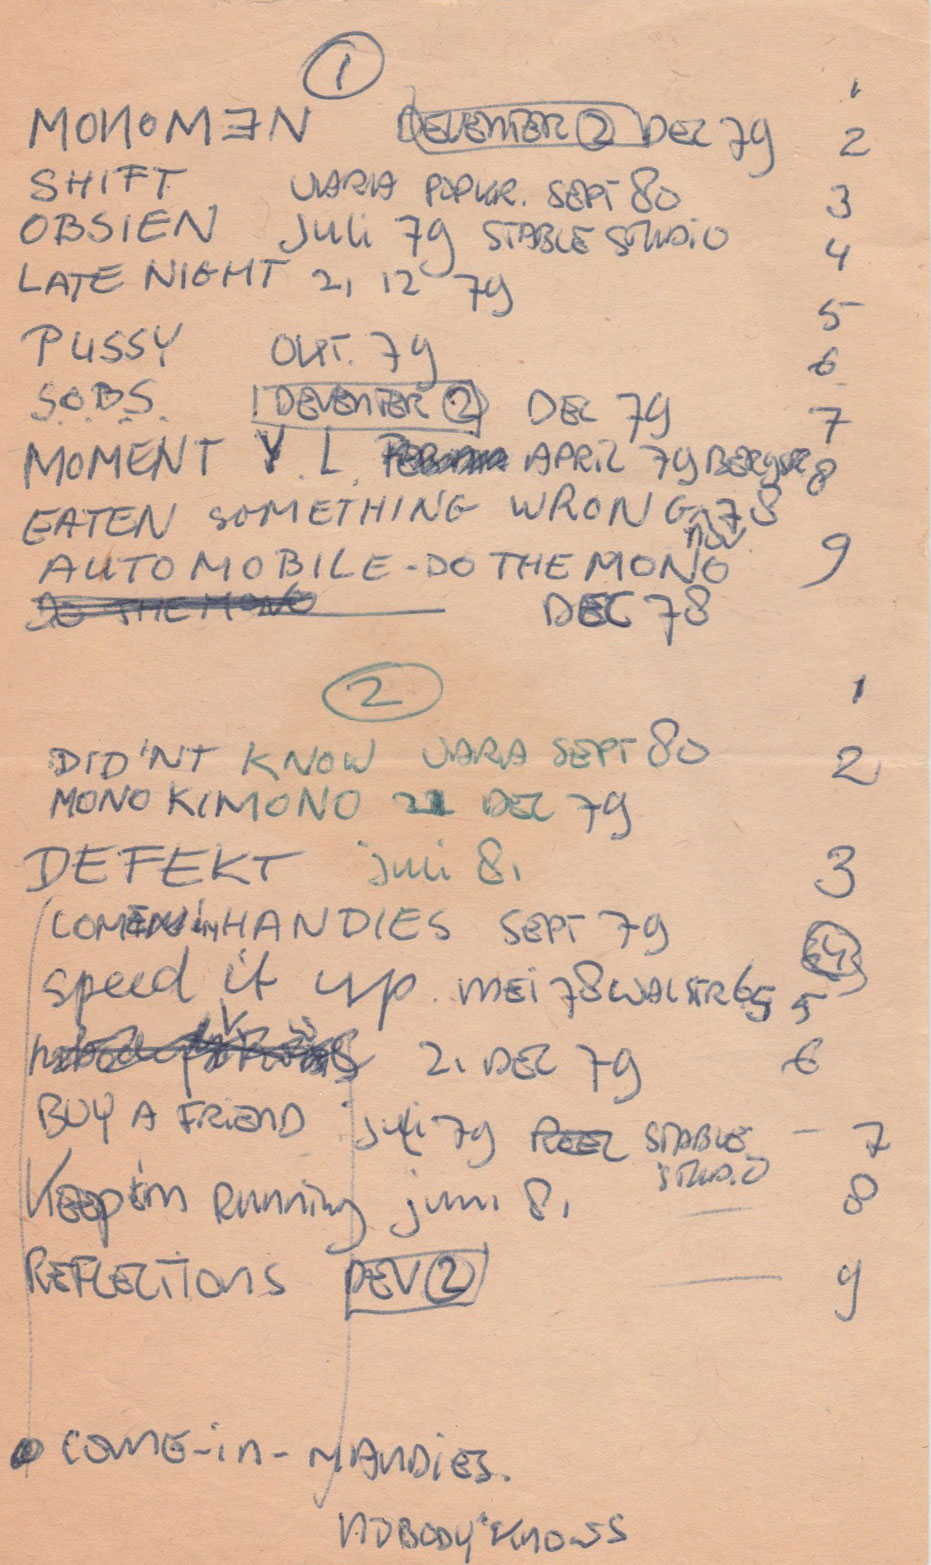 1
MONOMEN DEVENTER 2 DEC 79 1
SHIFT VARIA POPKR. SEPT 80 2
OBSIEN juli 79 STABLE STUDIO 3
LATE NIGHT 21 12 79 4
PUSSY OKT. 79 5
S.O.B.S. DEVENTER 2 DEC 79 6
MOMENT V. L. APRIL 79 7
EATEN SOMETHING WRONG 78 8
nov.
AUTOMOBILE-DO THE MONO 9
DO THE MONO DEC 78
2
DID'NT KNOW VARA SEPT 80 1
MONO KIMONO 21 DEC 79 2
DEFEKT juli 81 3
COME in HANDIES SEPT 79 4
speed it up. mei 78 WALSTR 65 5
nobody knows 21 DEC 79 6
BUY A FRIEND juli 79 STABLE - 7
STUDIO
Keep em running juni 81 8
REFLECTIONS DEV 2 9
COME-in-HANDIES.
NOBODY KNOWS